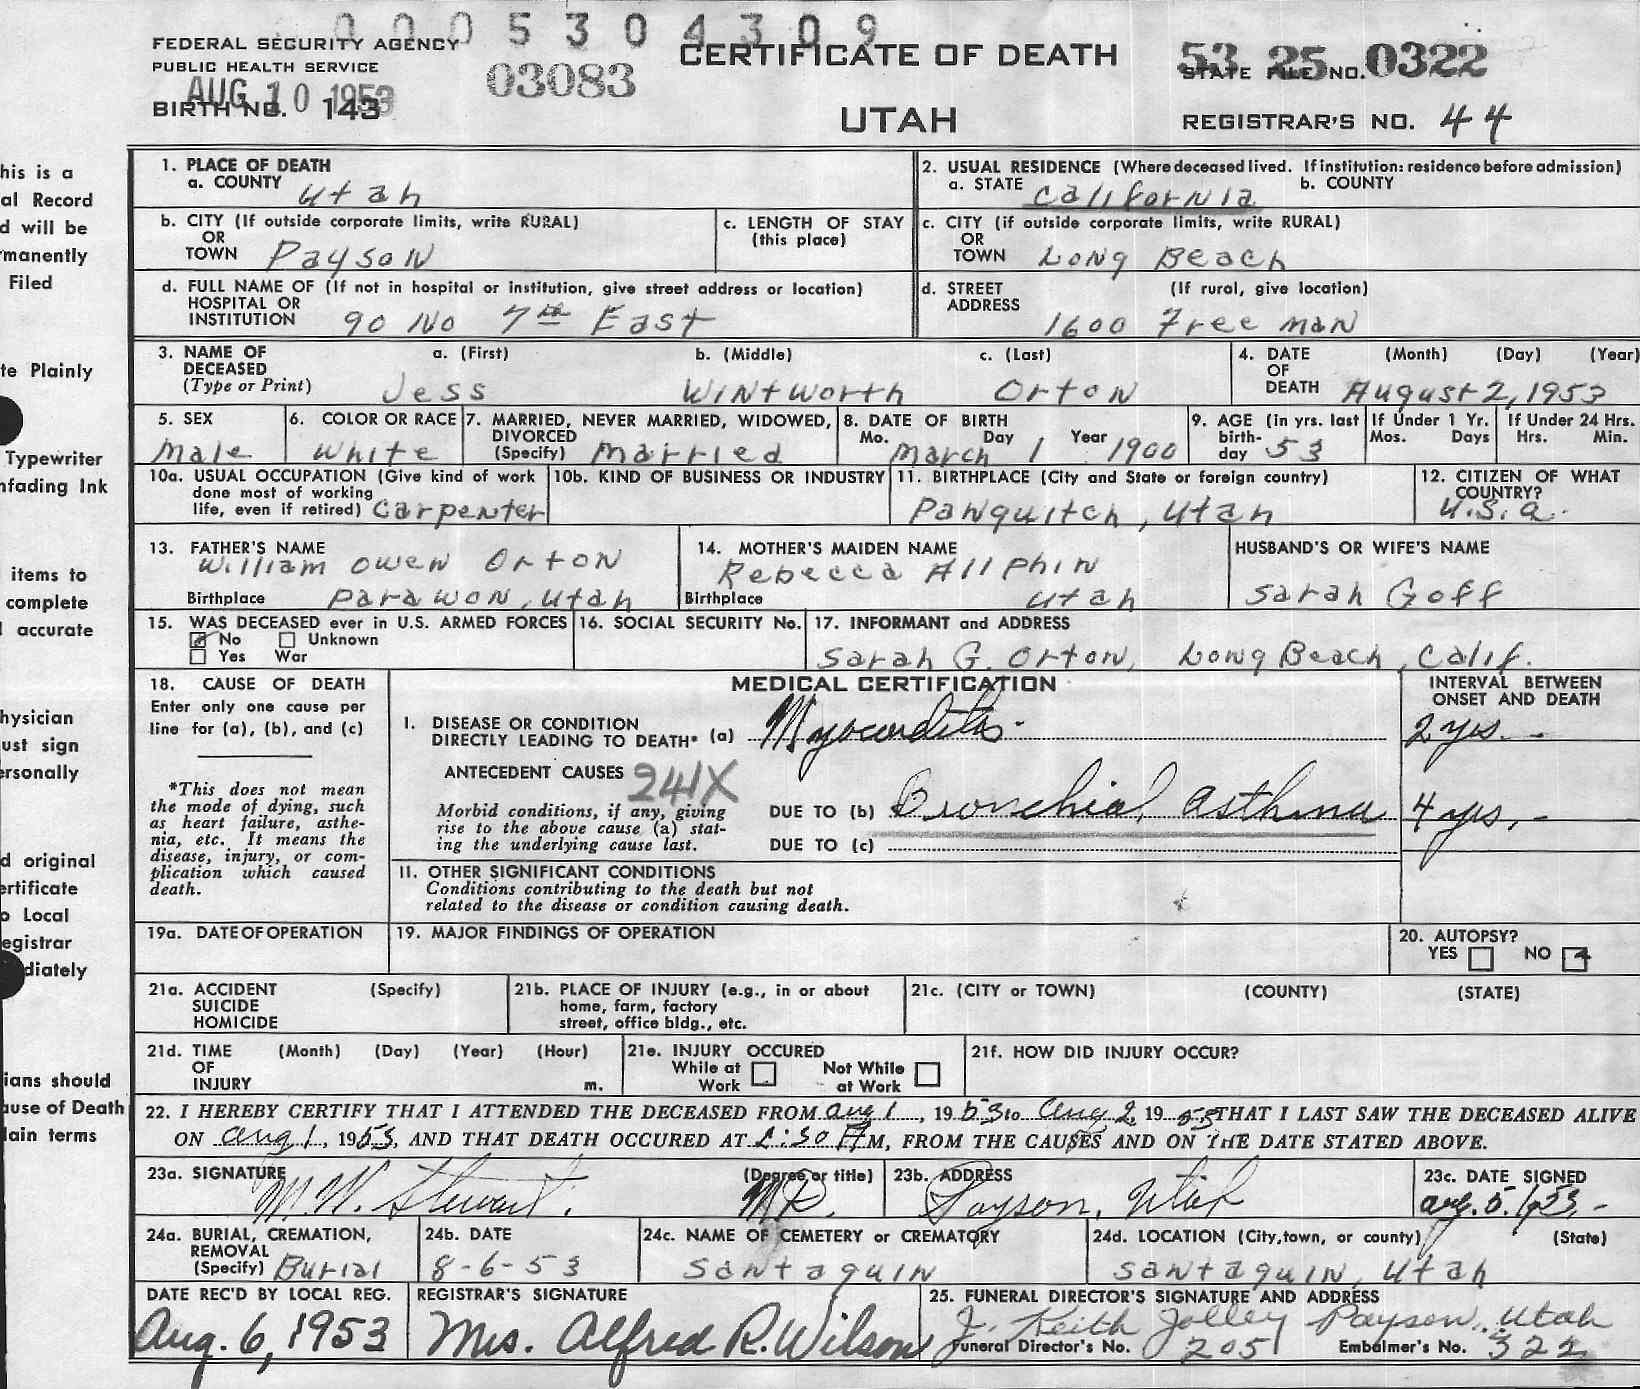 0005304309
FEDERAL SECURITY AGENCY
PUBLIC HEALTH SERVICE
AUG 10 1953
BIRTH NO. 143
03083
CERTIFICATE OF DEATH
UTAH
53 25 0322
STATE FILE NO.
REGISTRAR'S NO. 44
his is a
al Record
d will be
manently
Filed
te Plainly
Typewriter
nfading Ink
items to
complete
accurate
hysician
ust sign
ersonally
d original
ertificate
o Local
egistrar
diately
ians should
ause of Death
lain terms
1. PLACE OF DEATH
a. COUNTY Utah
2. USUAL RESIDENCE (Where deceased lived. If institution: residence before admission)
a. STATE California b. COUNTY
b. CITY (If outside corporate limits, write RURAL)
OR
TOWN Payson
c. LENGTH OF STAY
(this place)
c. CITY (if outside corporate limits, write RURAL)
OR
TOWN Long Beach
d. FULL NAME OF (If not in hospital or institution, give street address or location)
HOSPITAL OR
INSTITUTION 90 No 7th East
d. STREET (If rural, give location)
ADDRESS 1600 Freeman
3. NAME OF a. (First) b. (Middle) c. (Last)
DECEASED
(Type or Print) Jess Wintworth Orton
4. DATE (Month) (Day) (Year)
OF
DEATH August 2, 1953
5. SEX
Male
6. COLOR OR RACE
White
7. MARRIED, NEVER MARRIED, WIDOWED,
DIVORCED
(Specify) Married
8. DATE OF BIRTH
Mo. Day Year
March 1 1900
9. AGE (in yrs. last
birth-
day 53
If Under 1 Yr.
Mos. Days
If Under 24 Hrs.
Hrs. Min.
10a. USUAL OCCUPATION (Give kind of work
done most of working
life, even if retired) Carpenter
10b. KIND OF BUSINESS OR INDUSTRY
11. BIRTHPLACE (City and State or foreign country)
Panquitch, Utah
12. CITIZEN OF WHAT
COUNTRY?
U.S.A.
13. FATHER'S NAME
William Owen Orton
Birthplace Parawon, Utah
14. MOTHER'S MAIDEN NAME
Rebecca Allphin
Birthplace Utah
HUSBAND'S OR WIFE'S NAME
Sarah Goff
15. WAS DECEASED ever in U.S. ARMED FORCES
No Unknown
Yes War
16. SOCIAL SECURITY No.
17. INFORMANT and ADDRESS
Sarah G. Orton, Long Beach, Calif.
18. CAUSE OF DEATH
Enter only one cause per
line for (a), (b), and (c)
*This does not mean
the mode of dying, such
as heart failure, asthe-
nia, etc. It means the
disease, injury, or com-
plication which caused
death.
MEDICAL CERTIFICATION
INTERVAL BETWEEN
ONSET AND DEATH
I. DISEASE OR CONDITION
DIRECTLY LEADING TO DEATH* (a) Myocarditis 2 yrs.
ANTECEDENT CAUSES 241X
Morbid conditions, if any, giving
rise to the above cause (a) stat-
ing the underlying cause last.
DUE TO (b) Bronchial asthma 4 yrs.
DUE TO (c)
II. OTHER SIGNIFICANT CONDITIONS
Conditions contributing to the death but not
related to the disease or condition causing death.
19a. DATE OF OPERATION
19. MAJOR FINDINGS OF OPERATION
20. AUTOPSY?
YES NO
21a. ACCIDENT (Specify)
SUICIDE
HOMICIDE
21b. PLACE OF INJURY (e.g., in or about
home, farm, factory
street, office bldg., etc.
21c. (CITY or TOWN) (COUNTY) (STATE)
21d. TIME (Month) (Day) (Year) (Hour)
OF
INJURY m.
21e. INJURY OCCURED
While at Not While
Work at Work
21f. HOW DID INJURY OCCUR?
22. I HEREBY CERTIFY THAT I ATTENDED THE DECEASED FROM Aug 1, 1953 to Aug 2, 1953 THAT I LAST SAW THE DECEASED ALIVE
ON Aug 1, 1953, AND THAT DEATH OCCURED AT 2:30 AM, FROM THE CAUSES AND ON THE DATE STATED ABOVE.
23a. SIGNATURE (Degree or title)
M. W. Stewart. M.D.
23b. ADDRESS
Payson, Utah
23c. DATE SIGNED
Aug. 5, 1953
24a. BURIAL, CREMATION,
REMOVAL
(Specify) Burial
24b. DATE
8-6-53
24c. NAME OF CEMETERY or CREMATORY
Santaquin
24d. LOCATION (City, town, or county) (State)
Santaquin, Utah
DATE REC'D BY LOCAL REG.
Aug. 6, 1953
REGISTRAR'S SIGNATURE
Mrs. Alfred R. Wilson
25. FUNERAL DIRECTOR'S SIGNATURE AND ADDRESS
J. Keith Jolley Payson, Utah
Funeral Director's No. 205 Embalmer's No. 322